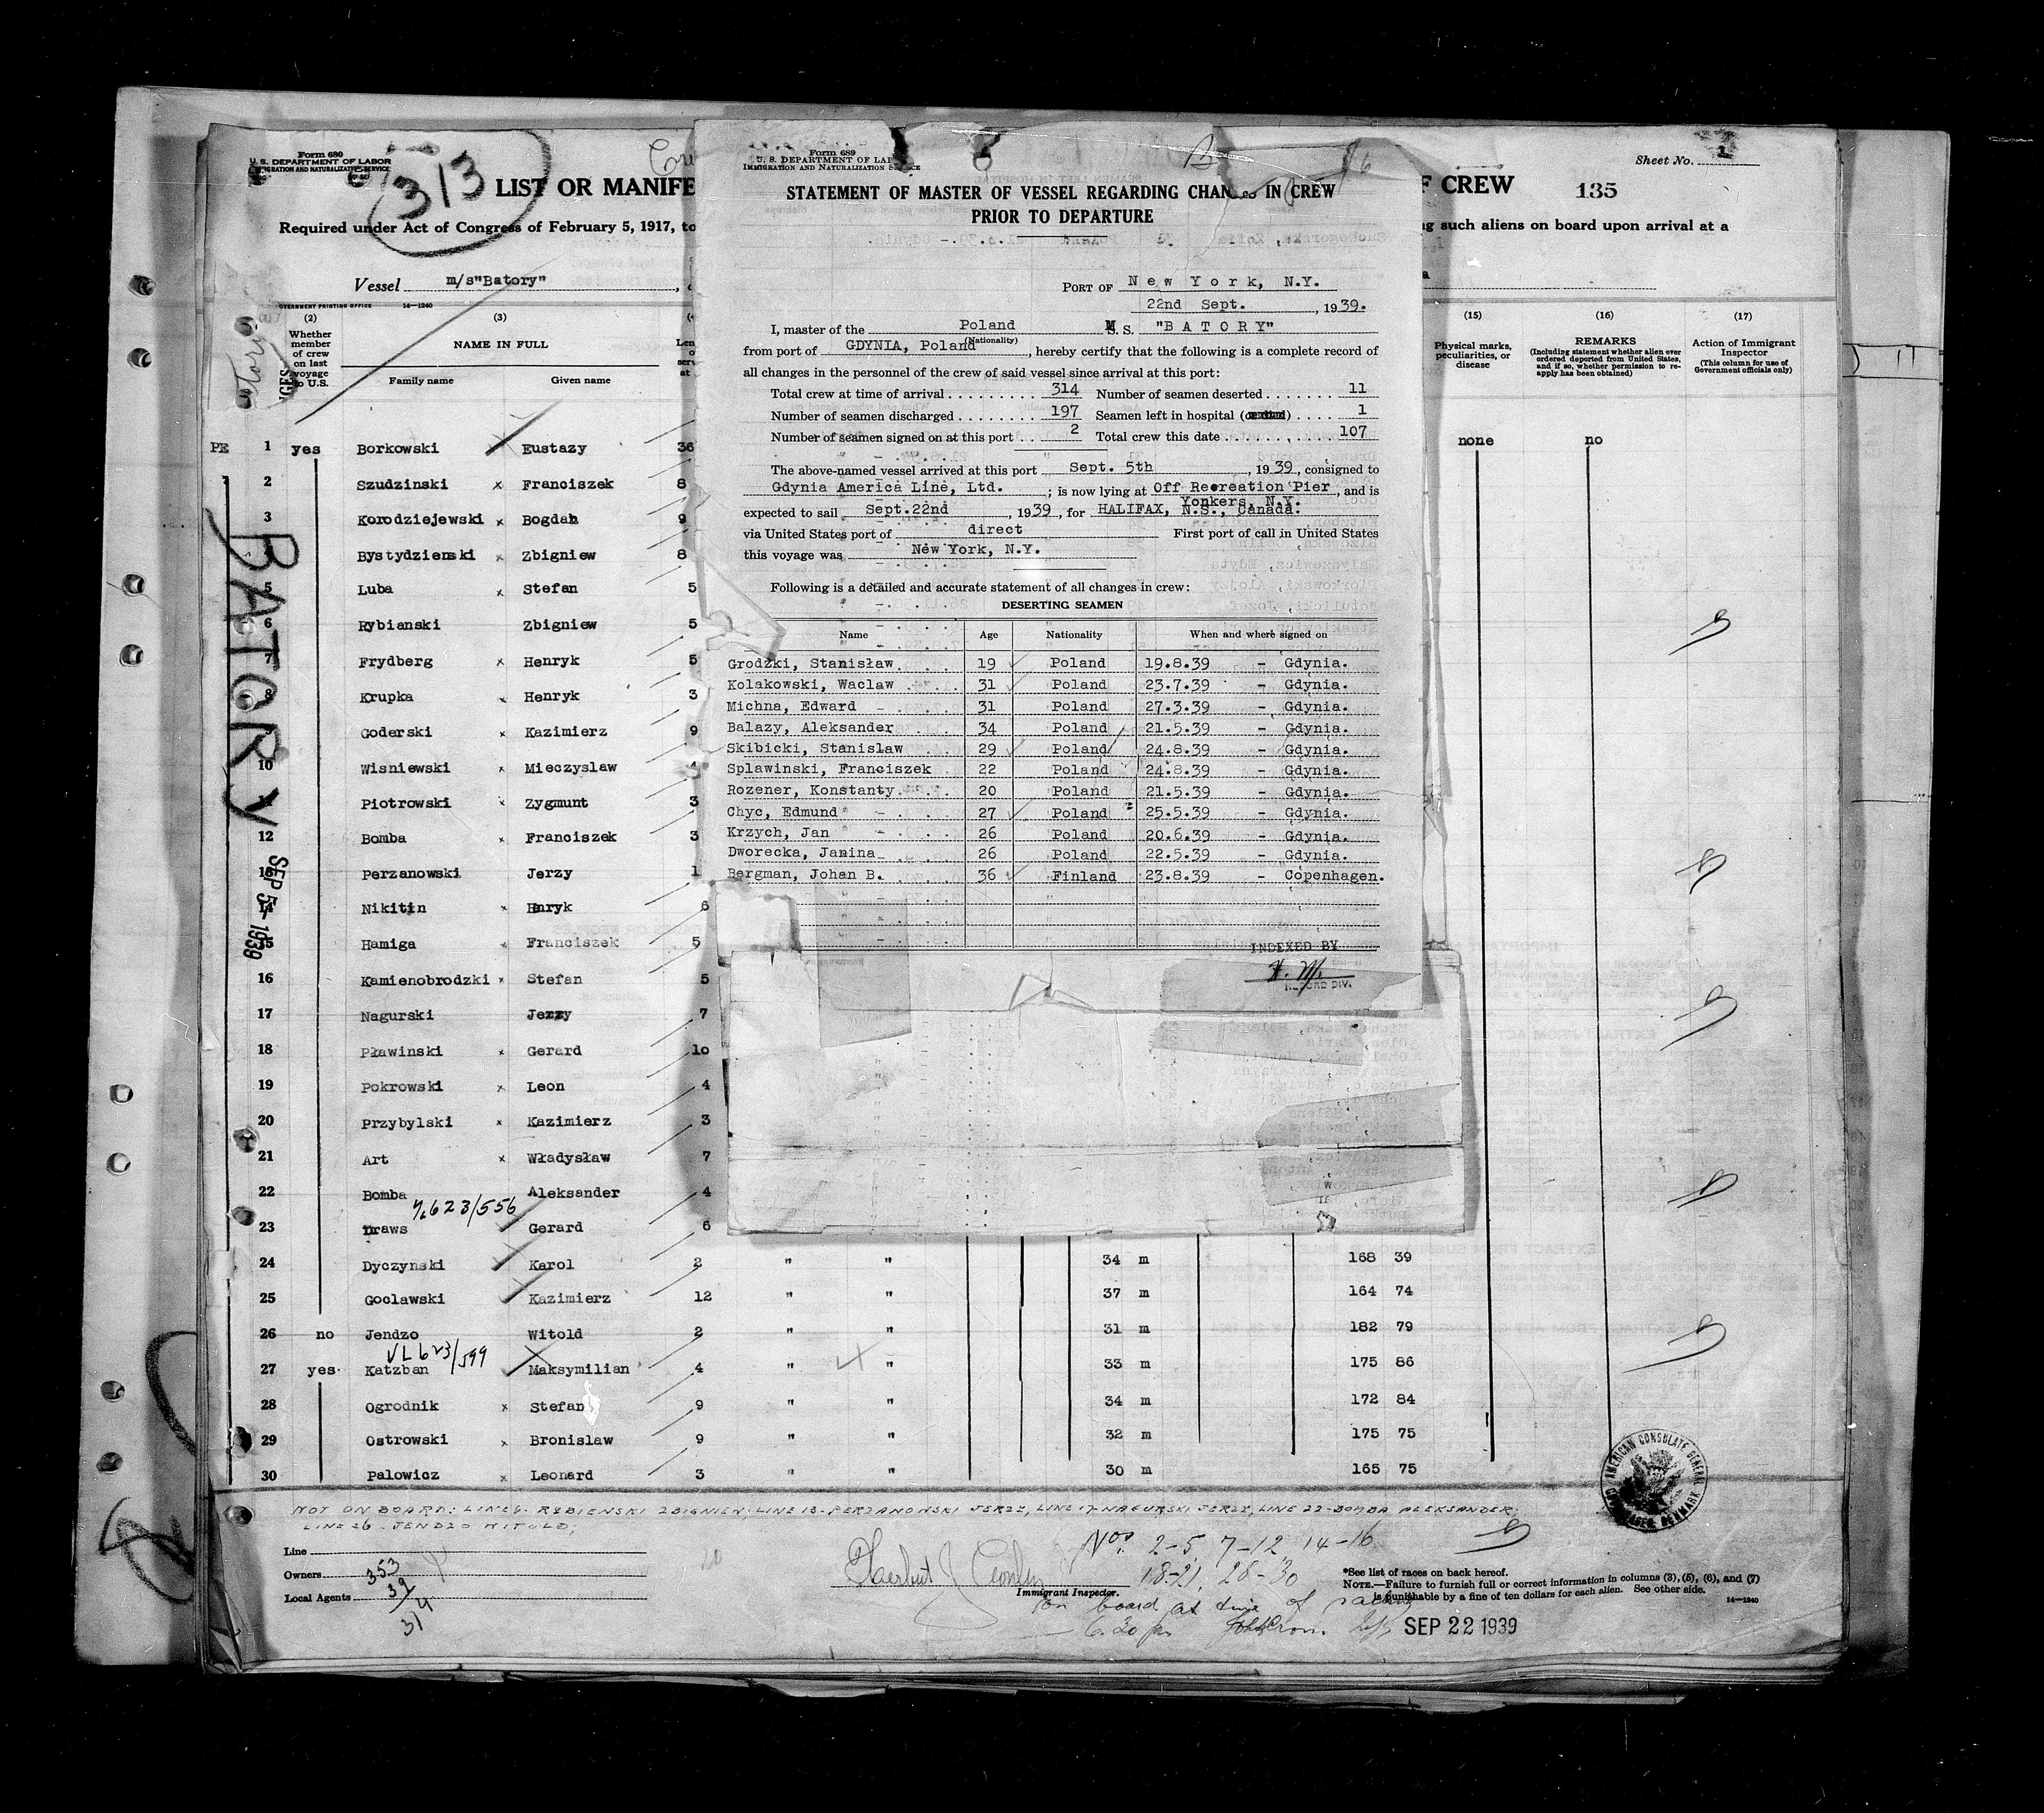 Form 680
U. S. DEPARTMENT OF LABOR
313
LIST OR MANIFE
Required under Act of Congress of February 5, 1917, to
Vessel m/s"Batory"
GOVERNMENT PRINTING OFFICE 14—1240
(2) (3)
Whether member of crew on last voyage to U.S.
NAME IN FULL
Family name Given name
PE 1 yes Borkowski Eustazy 36
2 Szudzinski x Franciszek 8
3 Korodziejewski x Bogdan 9
Bystydzienski x Zbigniew 8
5 Luba x Stefan 5
6 Rybianski Zbigniew 5
7 Frydberg x Henryk 5
8 Krupka x Henryk 3
Goderski x Kazimierz 9
10 Wisniewski x Mieczyslaw
Piotrowski x Zygmunt 3
12 Bomba x Franciszek 3
13 Perzanowski Jerzy 1
14 Nikitin x Henryk 6
15 Hamiga x Franciszek 5
16 Kamienobrodzki x Stefan 5
17 Nagurski Jerzy 7
18 Pławinski x Gerard 10
19 Pokrowski x Leon 4
20 Przybylski x Kazimierz 3
21 Art x Władysław 7
22 Bomba Aleksander 4
623/556
23 Draws Gerard 6
24 Dyczynski Karol 2 " " 34 m 168 39
25 Goclawski Kazimierz 12 " " 37 m 164 74
26 no Jendzo Witold 2 " " 31 m 182 79
VL 623/599
27 yes Katzban Maksymilian 4 " " 33 m 175 86
28 Ogrodnik x Stefan 9 " " 34 m 172 84
29 Ostrowski x Bronislaw 9 " " 32 m 175 75
30 Palowicz x Leonard 3 " " 30 m 165 75
BATORY
SEP 5- 1939
NOT ON BOARD: LINE 6. RYBIENSKI ZBIGNIEN; LINE 13-PERZANOWSKI JERZY, LINE 17-NAGURSKI JERZY, LINE 22-BOMBA ALEKSANDER;
LINE 26. JENDZO WITOLD;
Line
Owners
Local Agents
353
39
314
Immigrant Inspector.
Nos. 2-5, 7-12, 14-16
18-21, 28-30
on board at time of sailing
6.30 pm
SEP 22 1939
*See list of races on back hereof.
NOTE.—Failure to furnish full or correct information in columns (3), (5), (6), and (7)
is punishable by a fine of ten dollars for each alien. See other side.
14—1240
AMERICAN CONSULATE GENERAL
COPENHAGEN, DENMARK
Form 689
U. S. DEPARTMENT OF LAB
IMMIGRATION AND NATURALIZATION SERVICE
STATEMENT OF MASTER OF VESSEL REGARDING CHANGES IN CREW
PRIOR TO DEPARTURE
PORT OF New York, N.Y.
22nd Sept., 1939.
I, master of the Poland M. S. "BATORY"
(Nationality)
from port of GDYNIA, Poland, hereby certify that the following is a complete record of
all changes in the personnel of the crew of said vessel since arrival at this port:
Total crew at time of arrival 314 Number of seamen deserted 11
Number of seamen discharged 197 Seamen left in hospital 1
Number of seamen signed on at this port 2 Total crew this date 107
The above-named vessel arrived at this port Sept. 5th, 1939, consigned to
Gdynia America Line, Ltd.; is now lying at Off Recreation Pier, and is
Yonkers, N.Y.
expected to sail Sept.22nd, 1939, for HALIFAX, N.S., Canada.
via United States port of direct First port of call in United States
this voyage was New York, N.Y.
Following is a detailed and accurate statement of all changes in crew:
DESERTING SEAMEN
Name Age Nationality When and where signed on
Grodzki, Stanisław 19 Poland 19.8.39 - Gdynia.
Kolakowski, Waclaw 31 Poland 23.7.39 - Gdynia.
Michna, Edward 31 Poland 27.3.39 - Gdynia.
Balazy, Aleksander 34 Poland 21.5.39 - Gdynia.
Skibicki, Stanislaw 29 Poland 24.8.39 - Gdynia.
Splawinski, Franciszek 22 Poland 24.8.39 - Gdynia.
Rozener, Konstanty 20 Poland 21.5.39 - Gdynia.
Chyc, Edmund 27 Poland 25.5.39 - Gdynia.
Krzych, Jan 26 Poland 20.6.39 - Gdynia.
Dworecka, Janina 26 Poland 22.5.39 - Gdynia.
Bergman, Johan B. 36 Finland 23.8.39 - Copenhagen.
INDEXED BY
H. M.
RECORD DIV.
Sheet No. 1
F CREW 135
g such aliens on board upon arrival at a
(15) (16) (17)
Physical marks, peculiarities, or disease
REMARKS
(Including statement whether alien ever ordered deported from United States, and if so, whether permission to reapply has been obtained)
Action of Immigrant Inspector
(This column for use of Government officials only)
none no